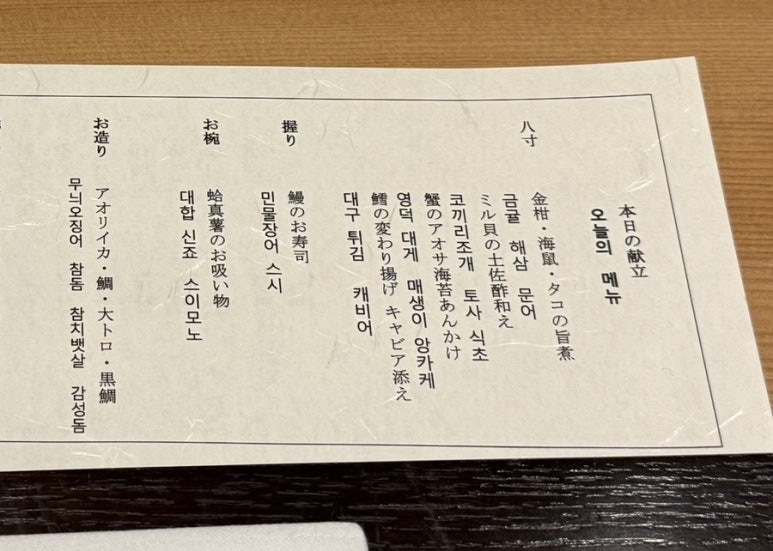 本日の献立
오늘의 메뉴
八寸
金柑・海鼠・タコの旨煮
금귤 해삼 문어
ミル貝の土佐酢和え
코끼리조개 토사 식초
蟹のアオサ海苔あんかけ
영덕 대게 매생이 앙카케
鱈の変わり揚げ キャビア添え
대구 튀김 캐비어
握り
鰻のお寿司
민물장어 스시
お椀
蛤真薯のお吸い物
대합 신죠 스이모노
お造り
アオリイカ・鯛・大トロ・黒鯛
무늬오징어 참돔 참치뱃살 감성돔